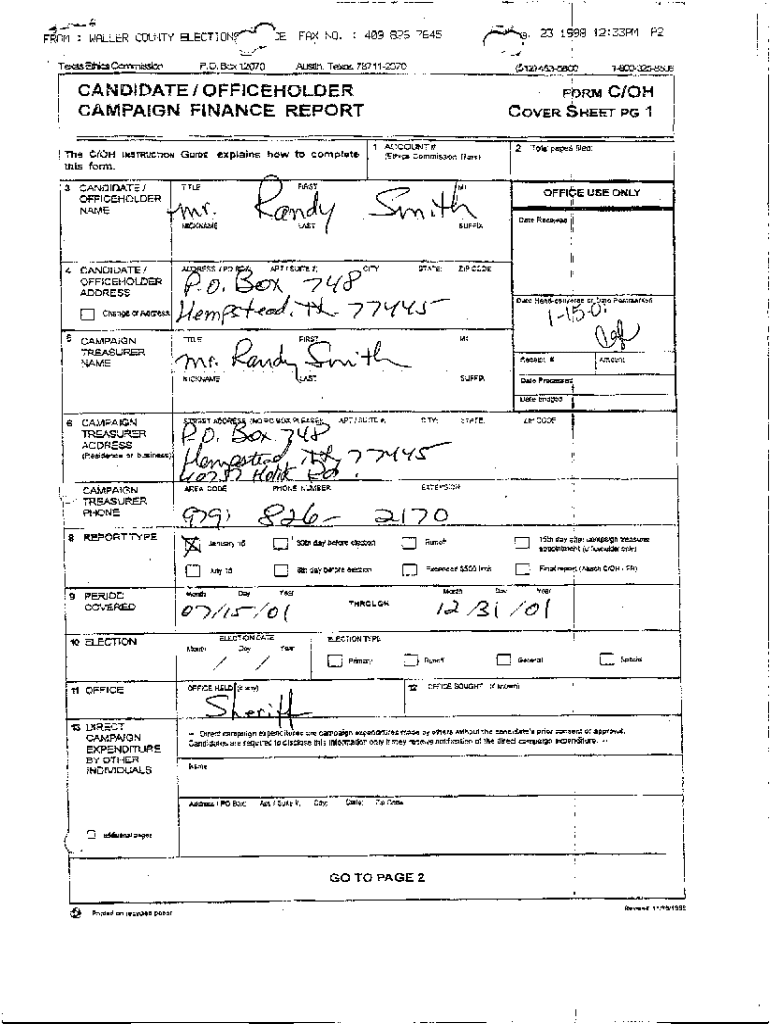 FROM : WALLER COUNTY ELECTIONS FAX NO. : 409 826 7645 23 1998 12:33PM P2
Texas Ethics Commission P.O. Box 12070 Austin, Texas 78711-2070 (512) 463-5800 1-800-325-8506
CANDIDATE / OFFICEHOLDER
CAMPAIGN FINANCE REPORT
FORM C/OH
COVER SHEET PG 1
The C/OH INSTRUCTION GUIDE explains how to complete
this form.
1 ACCOUNT #
(Ethics Commission filers)
2 Total pages filed:
3 CANDIDATE /
OFFICEHOLDER
NAME
TITLE FIRST MI
Mr. Randy Smith
NICKNAME LAST SUFFIX
OFFICE USE ONLY
Date Received
4 CANDIDATE /
OFFICEHOLDER
ADDRESS
Change of Address
ADDRESS / PO BOX; APT / SUITE #; CITY; STATE; ZIP CODE
P.O. Box 748
Hempstead, TX 77445
Date Hand-delivered or Date Postmarked
1-15-0
Receipt # Amount
Date Processed
Date Imaged
5 CAMPAIGN
TREASURER
NAME
TITLE FIRST MI
Mr. Randy Smith
NICKNAME LAST SUFFIX
6 CAMPAIGN
TREASURER
ADDRESS
(Residence or business)
STREET ADDRESS (NO PO BOX PLEASE); APT / SUITE #; CITY; STATE; ZIP CODE
P.O. Box 748
Hempstead, TX 77445
CAMPAIGN
TREASURER
PHONE
AREA CODE PHONE NUMBER EXTENSION
(979) 826-2170
8 REPORT TYPE
January 15
30th day before election
Runoff
15th day after campaign treasurer
appointment (officeholder only)
July 15
8th day before election
Exceeded $500 limit
Final report (Attach C/OH - FR)
9 PERIOD
COVERED
Month Day Year
07/15/01
THROUGH
Month Day Year
12/31/01
10 ELECTION
ELECTION DATE
Month Day Year
/ /
ELECTION TYPE
Primary Runoff General Special
11 OFFICE
OFFICE HELD (if any)
Sheriff
12 OFFICE SOUGHT (if known)
13 DIRECT
CAMPAIGN
EXPENDITURE
BY OTHER
INDIVIDUALS
additional pages
-- Direct campaign expenditures are campaign expenditures made by others without the candidate's prior consent or approval.
Candidates are required to disclose this information only if they receive notification of the direct campaign expenditure. --
Name
Address / PO Box; Apt / Suite #; City; State; Zip Code
GO TO PAGE 2
Printed on recycled paper
Revised